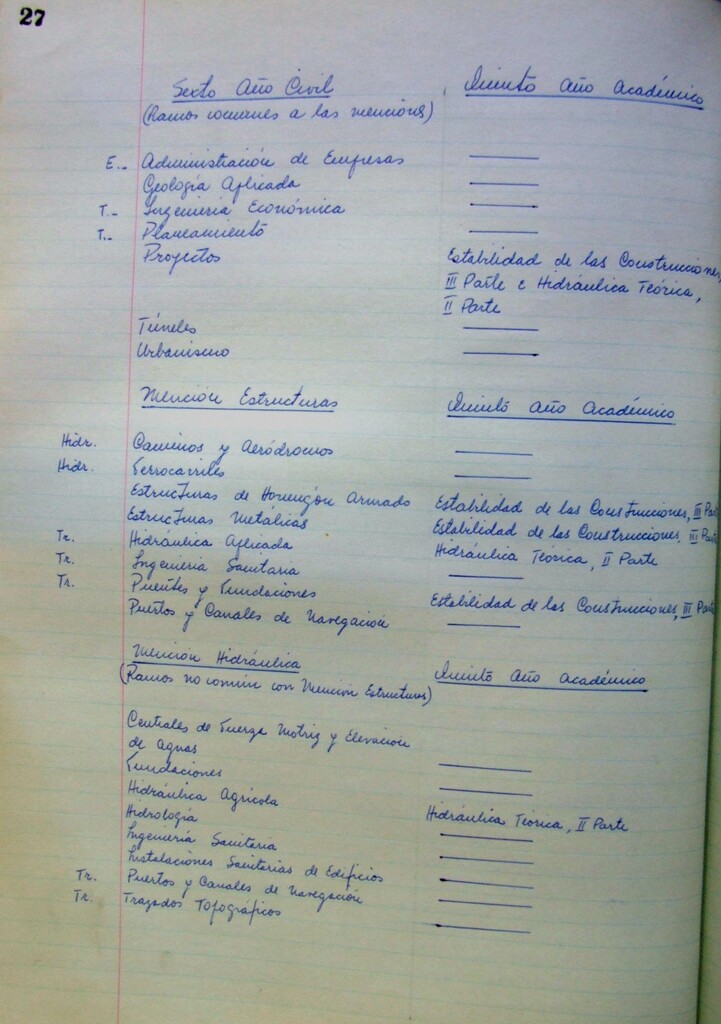 27
Sexto Año Civil    Quinto Año Académico
(Ramos comunes a las menciones)
E.- Administración de Empresas ———
Geología Aplicada ———
T.- Ingeniería Económica ———
T.- Planeamiento ———
Proyectos    Estabilidad de las Construcciones,
III Parte e Hidráulica Teórica,
II Parte
Túneles ———
Urbanismo ———
Mención Estructuras    Quinto Año Académico
Hidr. Caminos y Aeródromos ———
Hidr. Ferrocarriles ———
Estructuras de Hormigón Armado    Estabilidad de las Construcciones, III Part
Estructuras Metálicas    Estabilidad de las Construcciones, III Part
Tr. Hidráulica Aplicada    Hidráulica Teórica, II Parte
Tr. Ingeniería Sanitaria ———
Tr. Puentes y Fundaciones    Estabilidad de las Construcciones, III Part
Puertos y Canales de Navegación ———
Mención Hidráulica    Quinto Año Académico
(Ramos no común con Mención Estructuras)
Centrales de Fuerza Motriz y Elevación
de aguas ———
Fundaciones ———
Hidráulica Agrícola
Hidrología    Hidráulica Teórica, II Parte
Ingeniería Sanitaria ———
Instalaciones Sanitarias de Edificios ———
Tr. Puertos y Canales de Navegación ———
Tr. Trazados Topográficos ———